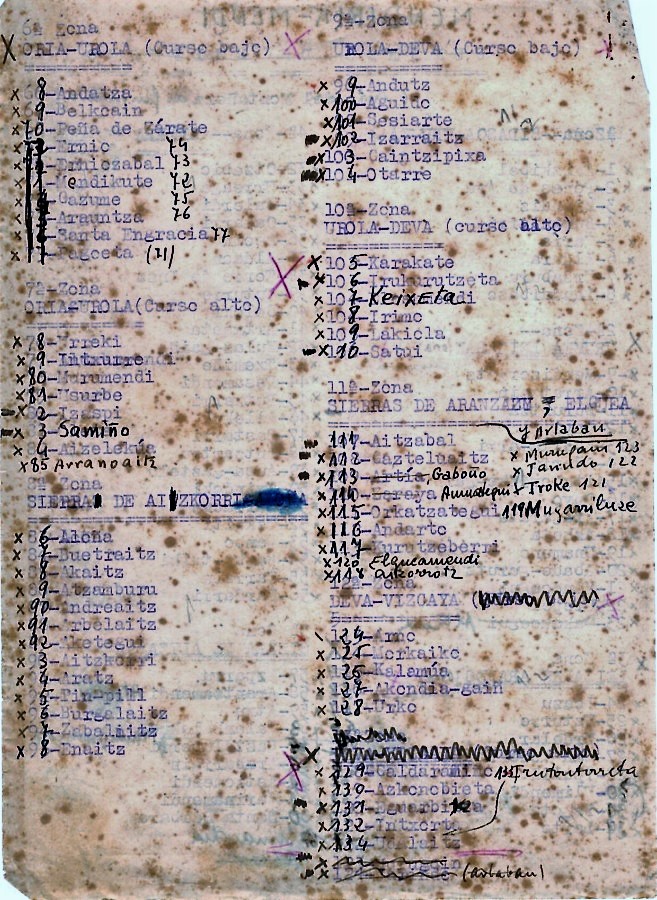 6ª Zona
ORIA-UROLA (Curso bajo)
68-Andatza
69-Belkoain
70-Peña de Zárate
Ernio 74
Erniozabal 73
Mendikute 72
Gazume 75
Arauntza 76
Santa Engracia 77
Pagoeta (71)
7ª-Zona
ORIA-UROLA(Curso alto)
78-Urreki
79-Intxurrendi
80-Murumendi
81-Usurbe
82-Izaspi
83-Samiño
84-Aizeleküa
x85 Arranoaitz
8ª Zona
SIERRA DE AITZKORRI
86-Aloña
87-Duetraitz
88-Akaitz
89-Atzamburu
90-Andreaitz
91-Arbelaitz
92-Aketegui
93-Aitzkorri
94-Aratz
95-Tin-pill
96-Burgalaitz
97-Zabalaitz
98-Enaitz
9ª-Zona
UROLA-DEVA (Curso bajo)
99-Andutz
x100-Aguido
x101-Sesiarte
x102-Izarraitz
x103-Gaintzipixa
x104-Otarre
10ª-Zona
UROLA-DEVA (curso alto)
x105-Karakate
x106-Irukurutzeta
x107-Keixeta
x108-Irimo
x109-Lakiola
x110-Satui
11ª-Zona
SIERRAS DE ARANZAZU = ELGUEA
y Arlaban
111-Aitzabal
x112-Gazteluaitz
x Murugain 123
x113-Artia, Gaboño
x Jarindo 122
x Troke 121
x115-Orkatzategui 119 Mugarriluze
x116-Andarto
x117-Kurutzeberri
x120 Elgueamendi
x118 Aizkorrotz
DEVA-VIZCAYA
124-Arno
x125-Morkaiko
x126-Kalamúa
x127-Akondia-gain
x128-Urko
x129-Galdaramiño 133 Irutontorreta
x130-Azkonobieta
x131-Eguarbitza
x132-Intxorta
x134-Udalaitz
(Arlaban)